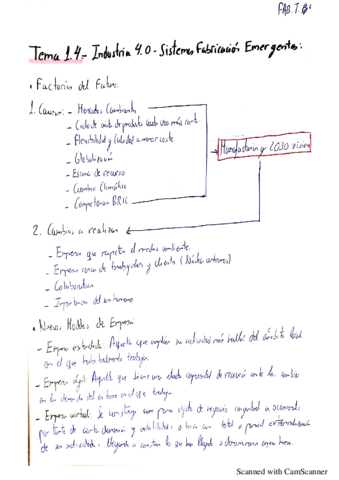 FAB.T.6
Tema 1.4.- Industria 4.0 - Sistemas Fabricación Emergentes:
• Factorías del Futuro.
1. Causas: - Mercados Cambiantes
- Ciclo de vida de producto cada vez más corto.
- Flexibilidad y Calidad a menor coste
- Globalización
- Escasez de recursos
- Cambio Climático
- Competencia BRIC
Manufacturing 2030 vision
2. Cambios a realizar
- Empresa que respeten el medio ambiente.
- Empresa cerca de trabajadores y clientes (Núcleo urbanos)
- Colaborativa
- Importancia del ser humano
• Nuevos Modelos de Empresa:
- Empresa extendida: Aquella que amplía su actividad más allá del ámbito local
en el que habitualmente trabaja.
- Empresa ágil: Aquella que tiene una elevada capacidad de reacción ante los cambios
en la demanda del entorno en el que trabaja.
- Empresa virtual: Se constituye con para objeto de negocio
por tanto de corta duración y
de sus actividades. llegando a
Scanned with CamScanner